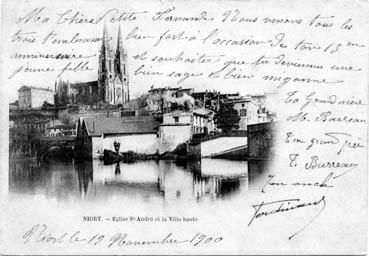 Ma Chère Petite Fernande Nous venons tous les
trois t'embrasser bien fort à l'occasion de ton 15 em
anniversaire et souhaiter que tu deviennes une
jeune fille bien sage et bien mignonne
Ta Grand mère
M. Barreau
Ton Grand Père
T. Barreau
Ton oncle
NIORT. - Eglise St-André et la Ville haute
Niort le 19 Novembre 1900